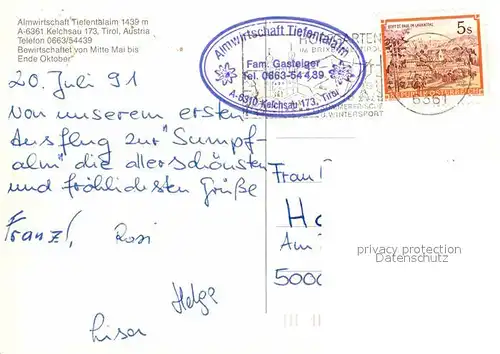 Almwirtschaft Tiefentalalm 1439 m
A-6361 Kelchsau 173, Tirol, Austria
Telefon 0663/54439
Bewirtschaftet von Mitte Mai bis
Ende Oktober
Almwirtschaft Tiefentalalm
Fam. Gasteiger
Tel. 0663-54439
A-6310 Kelchsau 173, Tirol
U. WINTERSPORT
6361
5s
20. Juli 91
Von unserem ersten
Ausflug zur "Sumpf-
alm" die allerschönsten
und fröhlichsten Grüße
Franzl, Rosi
Helge
Lisa
Frau
Ha
Am
5000
privacy protection
Datenschutz